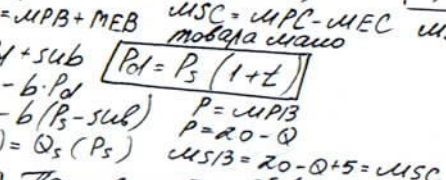 =MPB+MEB MSC = MPC-MEC
товара мало
+sub
Pd = Ps (1+t)
-b·Pd
-b(Ps-sub) P=MPB
P=20-Q
)= Qs(Ps)
MSB=20-Q+5=MSC